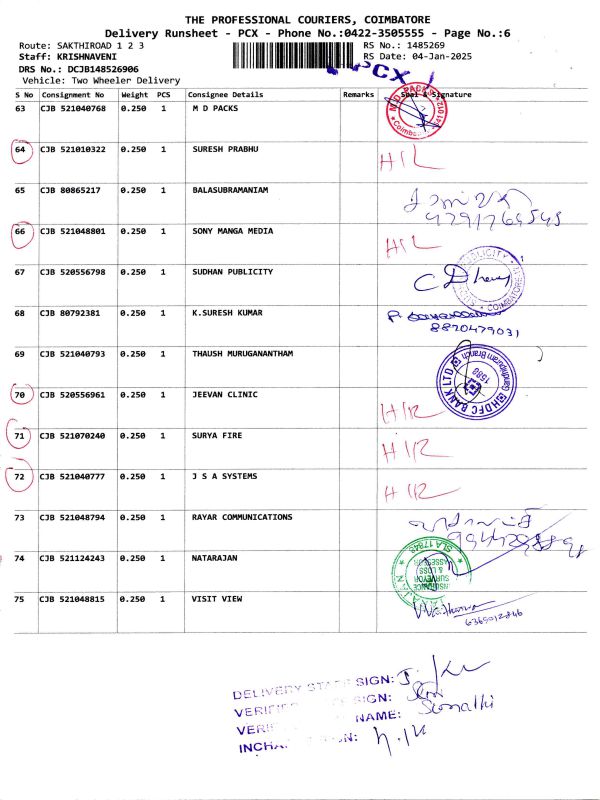 THE PROFESSIONAL COURIERS, COIMBATORE
Delivery Runsheet - PCX - Phone No.:0422-3505555 - Page No.:6
Route: SAKTHIROAD 1 2 3 RS No.: 1485269
Staff: KRISHNAVENI RS Date: 04-Jan-2025
DRS No.: DCJB148526906
PCX
Vehicle: Two Wheeler Delivery
S No Consignment No Weight PCS Consignee Details Remarks Seal & Signature
63 CJB 521040768 0.250 1 M D PACKS
64 CJB 521010322 0.250 1 SURESH PRABHU
65 CJB 80865217 0.250 1 BALASUBRAMANIAM
66 CJB 521048801 0.250 1 SONY MANGA MEDIA
67 CJB 520556798 0.250 1 SUDHAN PUBLICITY
68 CJB 80792381 0.250 1 K.SURESH KUMAR
8870479031
69 CJB 521040793 0.250 1 THAUSH MURUGANANTHAM
HDFC BANK LTD
1588
70 CJB 520556961 0.250 1 JEEVAN CLINIC
71 CJB 521070240 0.250 1 SURYA FIRE
72 CJB 521040777 0.250 1 J S A SYSTEMS
73 CJB 521048794 0.250 1 RAYAR COMMUNICATIONS
74 CJB 521124243 0.250 1 NATARAJAN
INSURANCE
SURVEYOR
& LOSS
ASSESSOR
75 CJB 521048815 0.250 1 VISIT VIEW
6369012846
DELIVERY STAFF SIGN:
SIGN:
NAME: Sumathi